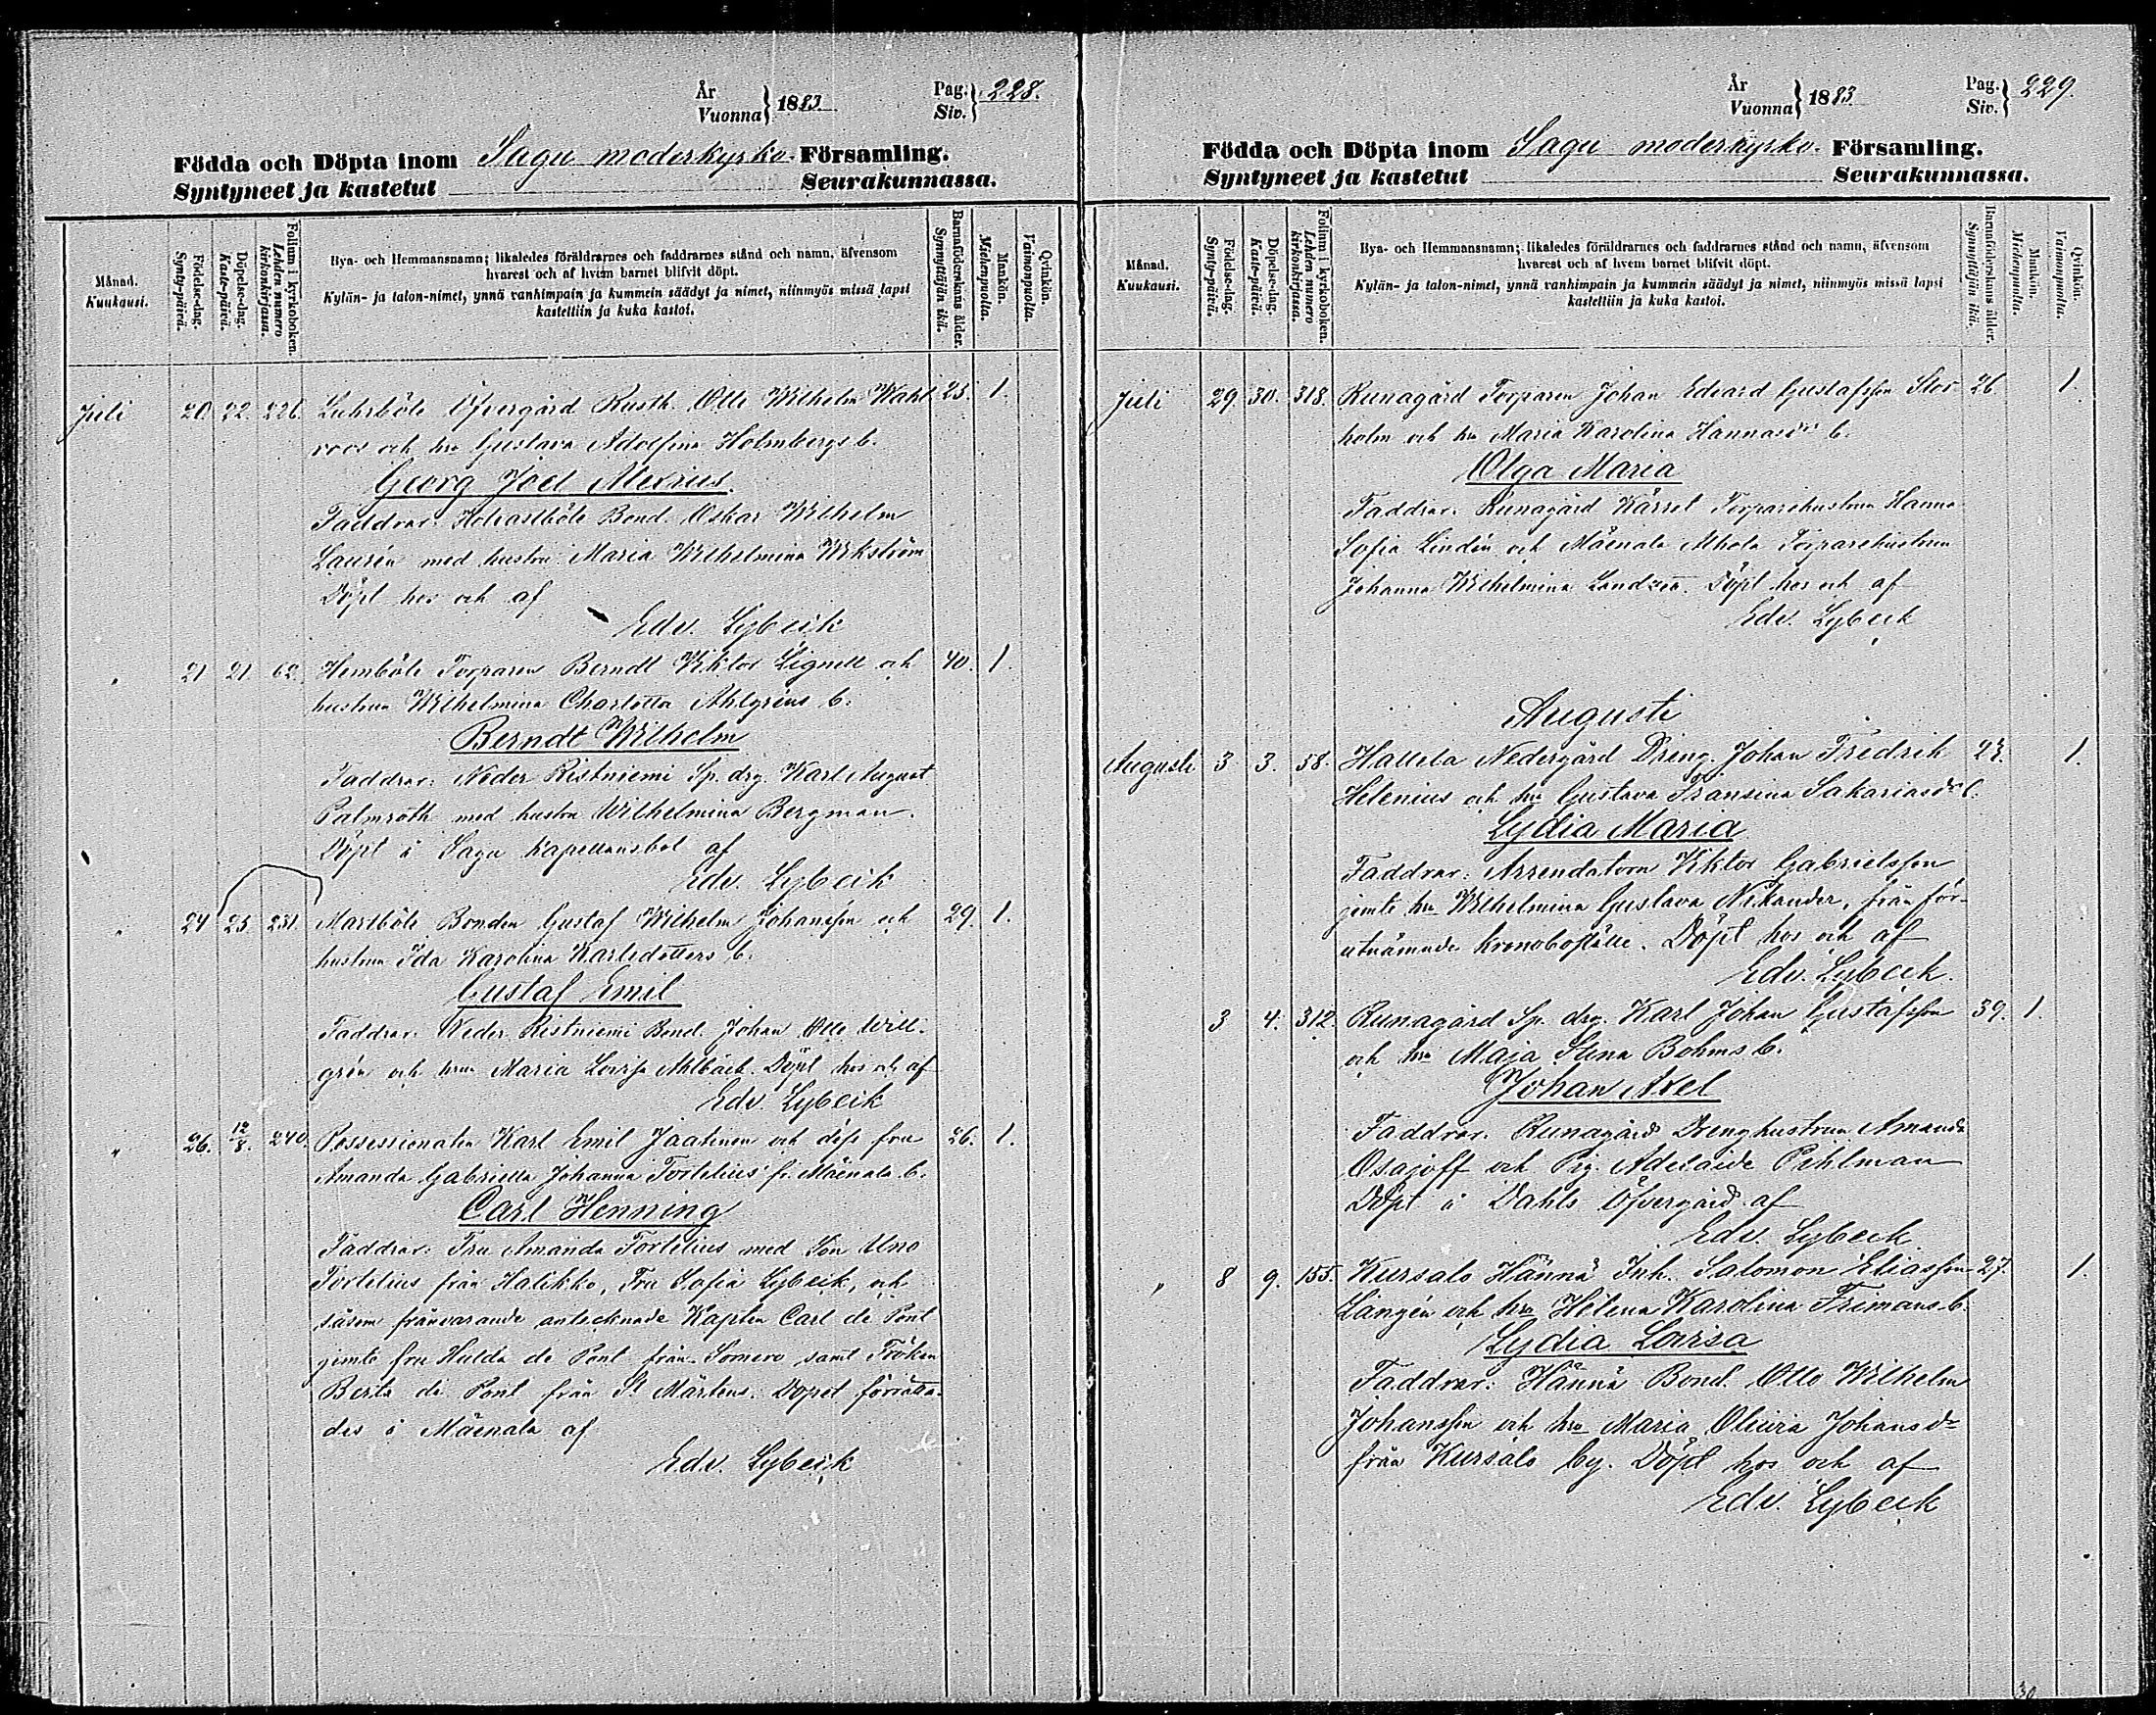 År
Vuonna } 1883.
Pag.
Siv. } 228.
Födda och Döpta inom Sagu moderkyrko- Församling.
Syntyneet ja kastetut Seurakunnassa.
Månad.
Kuukausi.
Födelse-dag.
Synty-päivä.
Döpelse-dag.
Kaste-päivä.
Folium i kyrkoboken.
Lehden numero kirkonkirjassa.
Bya- och Hemmansnamn; likaledes föräldrarnes och faddrarnes stånd och namn, äfvensom
hvarest och af hvem barnet blifvit döpt.
Kylän- ja talon-nimet, ynnä vanhimpain ja kummein säädyt ja nimet, niinmyös missä lapsi
kastettiin ja kuka kastoi.
Barnaföderskans ålder.
Synnyttäjän ikä.
Mankön.
Miehenpuolia.
Qvinkön.
Vaimonpuolia.
Juli 20. 22. 226. Luhrböle Öfvergård Rusth. Otto Wilhelm Wahl 25. 1.
roos och hru Gustava Adolfina Holmbergs b.
Georg Joel Alexius.
Faddrar: Bond. Oskar Wilhelm
Laurén med hustru Maria Wilhelmina Wikström
Döpt hos och af
Edv. Lybeck
" 21 21. 62. Hemböle Torparen Berndt Viktor Lignell och 40. 1.
hustrun Wilhelmina Charlotta Ahlgréns b.
Berndt Wilhelm
Faddrar: Neder Ristniemi Sp. drg. Karl August
Palmroth med hustru Wilhelmina Bergman.
Döpt å Sagu Kapellansbol af
Edv. Lybeck
" 24 25. 231. Martböle Bonden Gustaf Wilhelm Johansson och 29. 1.
hustrun Ida Karolina Karlsdotters b.
Gustaf Emil
Faddrar: Neder Ristniemi Bond. Johan Otto Will-
grén och hrun Maria Lovisa Ahlbäck. Döpt hos och af
Edv. Lybeck
" 26. 12/8. 240. Possessionaten Karl Emil Jaatinen och dess fru 26. 1.
Amanda Gabriella Johanna Fortelius' fr. Mäenala b.
Carl Henning
Faddrar: Fru Amanda Fortelius med Son Uno
Fortelius från Halikko, Fru Sofia Lybeck, och
såsom frånvarande antecknade Kapten Carl de Pont
jemte fru Hulda de Pont från Somero samt Fröken
Berta de Pont från St Mårtens. Dopet förrätta-
des å Mäenala af
Edv. Lybeck
År
Vuonna } 1883
Pag.
Siv. } 229.
Födda och Döpta inom Sagu moderkyrko- Församling.
Syntyneet ja kastetut Seurakunnassa.
Månad.
Kuukausi.
Födelse-dag.
Synty-päivä.
Döpelse-dag.
Kaste-päivä.
Folium i kyrkoboken.
Lehden numero kirkonkirjassa.
Bya- och Hemmansnamn; likaledes föräldrarnes och faddrarnes stånd och namn, äfvensom
hvarest och af hvem barnet blifvit döpt.
Kylän- ja talon-nimet, ynnä vanhimpain ja kummein säädyt ja nimet, niinmyös missä lapsi
kastettiin ja kuka kastoi.
Barnaföderskans ålder.
Synnyttäjän ikä.
Mankön.
Miehenpuolia.
Qvinkön.
Vaimonpuolia.
Juli 29. 30. 318. Runagård Torparen Johan Edvard Gustafsson Stor- 26. 1.
holm och hru Maria Karolina Hannasdr b.
Olga Maria
Faddrar: Runagård Kärret Torparehustrun Hanna
Sofia Lindén och Mäenala Torparehustrun
Johanna Wilhelmina Döpt hos och af
Edv. Lybeck
Augusti
Augusti 3 3. 58. Hallela Nedergård Dreng. Johan Fredrik 23. 1.
Helenius och hru Gustava Fransina Sakariasdr b.
Lydia Maria
Faddrar: Arrendatorn Viktor Gabrielsson
jemte hru Wilhelmina Gustava Nikander, från för-
utnämnde kronoboställe. Döpt hos och af
Edv. Lybeck.
3 4. 312. Runagård Sp. drg. Karl Johan Gustafsson 39. 1.
och hru Maja Stina Bohms b.
Johan Axel
Faddrar: Runagård Drenghustrun Amanda
Osajoff och Pig. Adelaide Pihlman
Döpt å Dahls Öfvergård af
Edv. Lybeck
" 8 9. 155. Kursalo Hännä Inh. Salomon Eliasson 27. 1.
Langén och hru Helena Karolina Frimans b.
Lydia Lovisa
Faddrar: Hännä Bond. Otto Wilhelm
Johansson och hru Maria Olivia Johansdr
från Kursalo by. Döpt hos och af
Edv. Lybeck
30